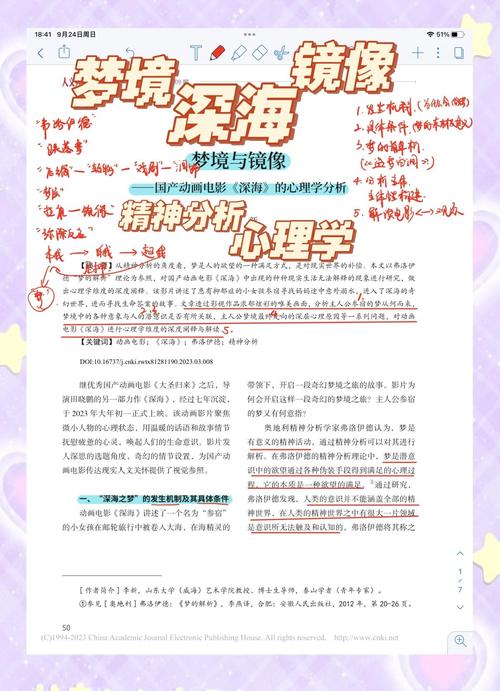 18:41 9月24日周日
51%
T
人文
梦境 深海 镜像
梦境与镜像
——国产动画电影《深海》的心理学分析
精神分析
心理学
韦洛伊德
梦
1.发生机制.
2.具体条件.
4.分析主体.
5.解说电影
从精神分析的角度看，梦是人的欲望的一种满足方式，是对现实世界的补偿。本文以弗洛伊
德“梦的解析”理论为参照，对国产动画电影《深海》中出现的种种现实生活无法解释的现象进行研究，做
出心理学维度的深度阐释。该影片讲述了患有抑郁症的小女孩参宿寻找妈妈途中意外溺水，进入了深海的奇
幻世界，进而寻找生命答案的故事。文章透过影视作品浓郁缤彩的唯美画面，分析主人公参宿的梦从何而来，
梦境中的各种意象与人的潜意识是否有所关联，主人公梦境最终走向的深层心理原因等一系列问题，对动画
电影《深海》进行心理学维度的深度阐释与解读
5.
【关键词】动画电影；《深海》；弗洛伊德；精神分析
DOI:10.16737/j.cnki.rwtx81281190.2023.03.008
继优秀国产动画电影《大圣归来》之后，导
演田晓鹏的另一部力作《深海》，经过七年沉淀，
于 2023 年大年初一正式上映。该动画影片聚焦
微小人物的心理状态，用温暖的话语和故事情节
抚慰疲惫的心灵，唤起人们的生命意识。影片发
人深思的选题角度，奇幻的情节设置，为国产动
画电影传达现实人文关怀提供了视觉参照。
一、“深海之梦”的发生机制及其具体条件
动画电影《深海》讲述了一个名为“参宿”
的小女孩在邮轮旅行中被卷入大海，在海精灵的
带领下，开启一段奇幻的梦境之旅的故事。影片为
何会开启这样一段奇幻的梦境之旅？主人公参宿
的梦又有何意指？
奥地利精神分析学家弗洛伊德认为，梦是
有意义的精神活动，通过精神分析可以对其进行
解析。在弗洛伊德的精神分析理论中，梦是潜意
识中的欲望通过各种伪装手段得到满足的心理过
程，它的本质是一种欲望的满足。①通过研究，
弗洛伊德发现，人类的意识并不能涵盖全部的精
神世界，在人类的精神世界之中有很大一片领域
是意识所无法触及和认知的，弗洛伊德将其称之
［作者简介］李新，山东大学（威海）艺术学院教授、博士生导师，泰山学者（青年专家）。
①参见［奥地利］弗洛伊德：《梦的解析》，李燕译，合肥：安徽人民出版社，2012 年，第 20-26 页。
50
(C)1994-2023 China Academic Journal Electronic Publishing House. All rights reserved. http://www.cnki.net
1
7